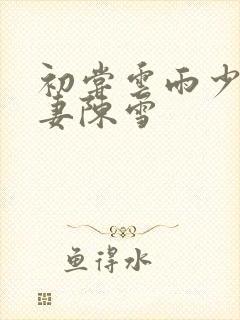 初尝雲雨少
妻陳雪
鱼得水